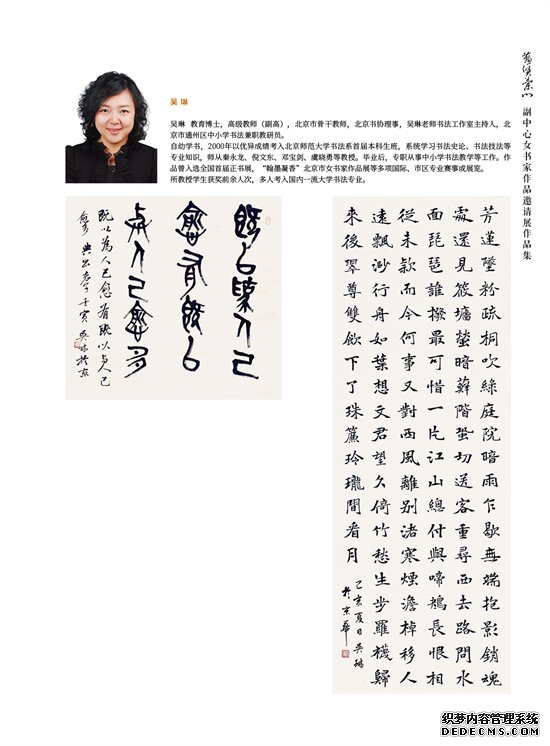 吴 琳
吴琳 教育博士，高级教师（副高），北京市骨干教师，北京书协理事，吴琳老师书法工作室主持人，北
京市通州区中小学书法兼职教研员。
自幼学书，2000年以优异成绩考入北京师范大学书法系首届本科生班，系统学习书法史论、书法技法等
专业知识，师从秦永龙、倪文东、邓宝剑、虞晓勇等教授。毕业后，专职从事中小学书法教学等工作。作
品曾入选全国首届正书展，“翰墨凝香”北京市女书家作品展等多项国际、市区专业赛事或展览。
所教授学生获奖前余人次，多人考入国内一流大学书法专业。
副中心女书家作品邀请展作品集
既以為人己
愈有既以
与人己愈多
既以為人己愈有既以与人己
愈多 典出老子 壬寅 吴琳於京
芳蓮墜粉疏桐吹綠庭院暗雨乍歇無端抱影銷魂
處還見筱墻螢暗蘚階蛩切送客重尋西去路問水
面琵琶誰撥最可惜一片江山總付與啼鴂長恨相
從未款而今何事又對西風離別渚寒煙澹棹移人
遠飄渺行舟如葉想文君望久倚竹愁生步羅襪歸
來後翠尊雙飲下了珠簾玲瓏閒看月
己亥夏日吳琳
於京華
织梦内容管理系统
DEDECMS.COM